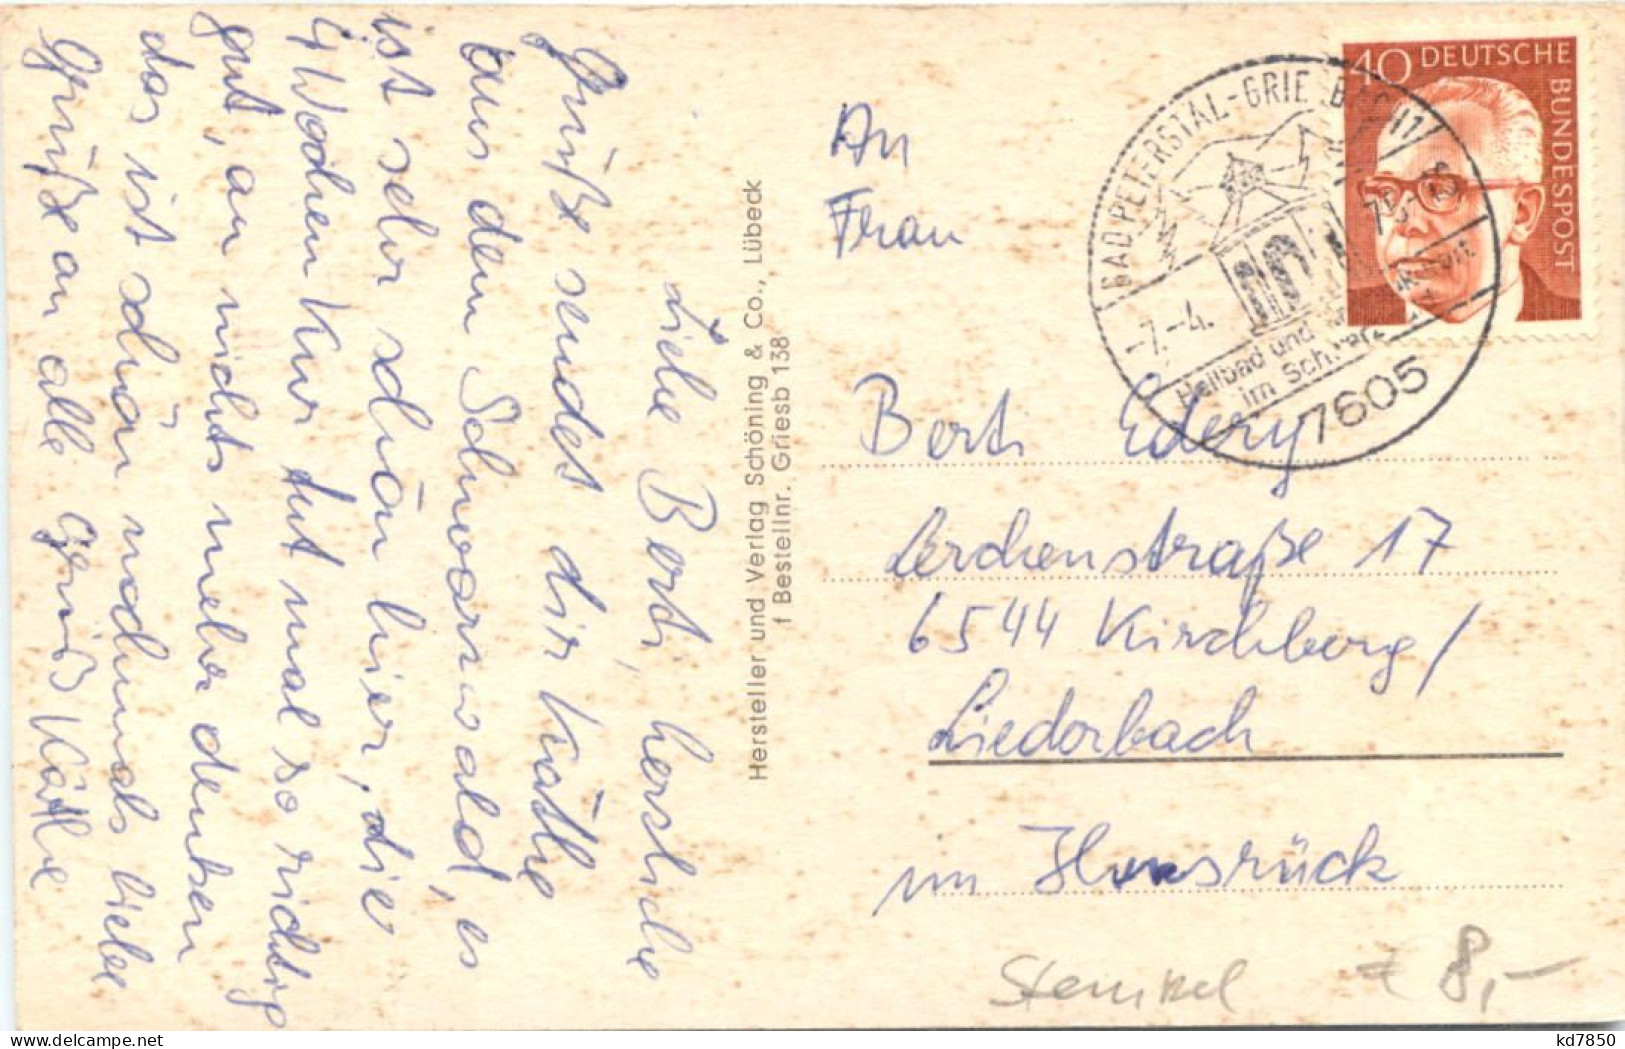 Liebe Berti, herzliche
Grüße sendet dir Käthe
aus dem Schwarzwald, es
ist sehr schön hier, die
4 Wochen Kur tut mal so richtig
gut, an nichts mehr denken
das ist schön nochmals liebe
Grüße an alle Gerds Käthe
Hersteller und Verlag Schöning & Co., Lübeck
† Bestellnr. Griesb 138
40 DEUTSCHE
BUNDESPOST
BAD PETERSTAL-GRIESBACH 1
-7.-4. 75-18
Heilbad und
im Schwarz
7605
An
Frau
Berti Edery
Lerchenstraße 17
6544 Kirchberg/
Liederbach
im Hunsrück
Stempel € 8,-
kd7850